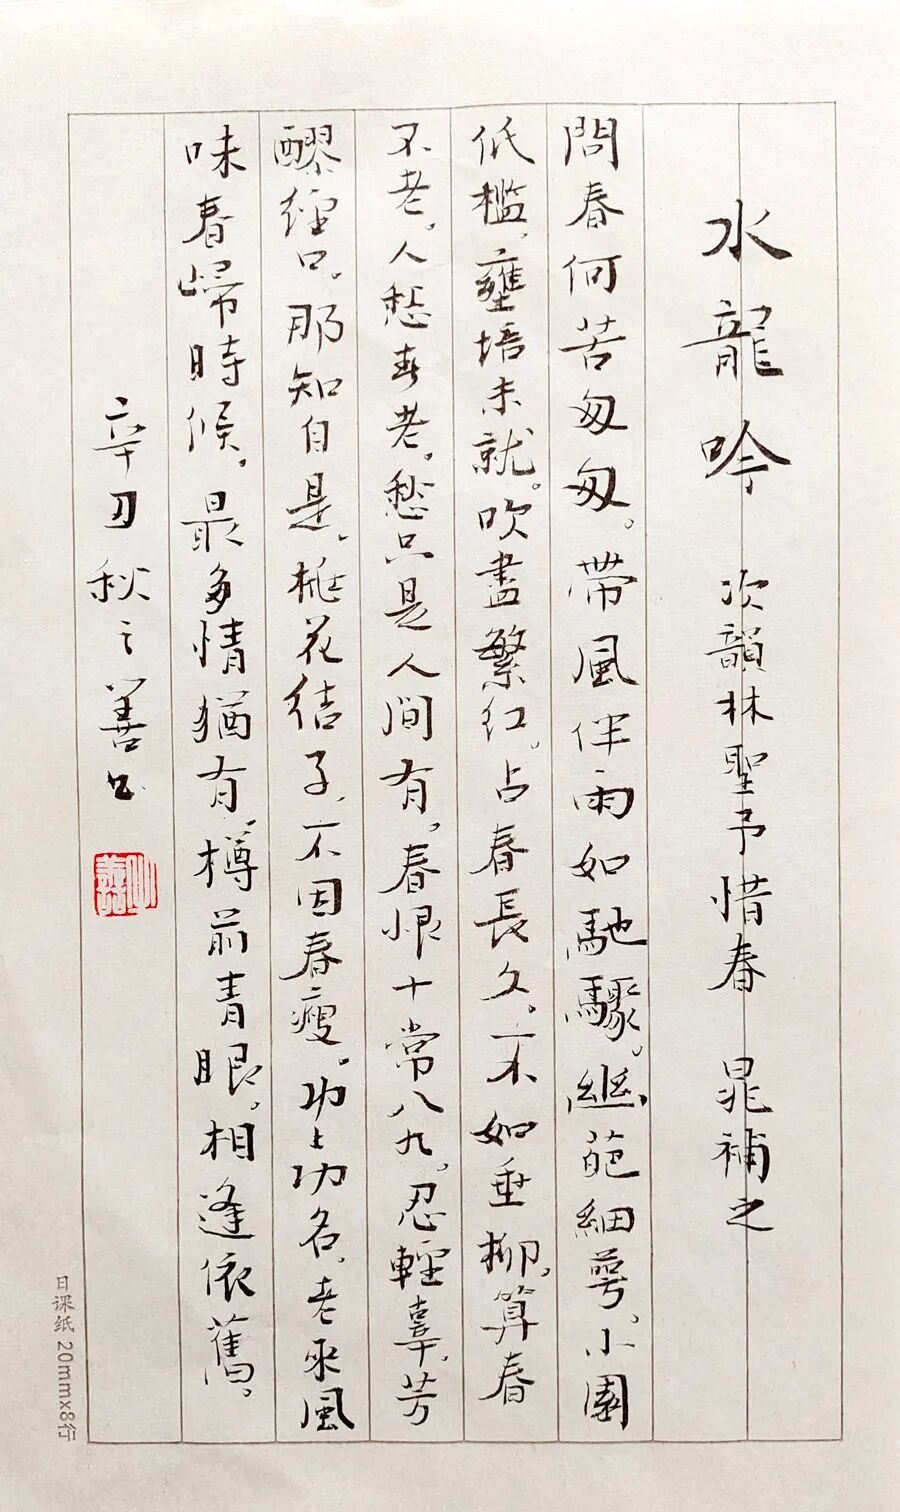 水龍吟 次韻林聖予惜春 晁補之
問春何苦匆匆。帶風伴雨如馳驟。幽葩細萼、小園
低檻、壅培未就。吹盡繁紅。占春長久、不如垂柳、算春
不老、人愁春老、愁只是人間有、春恨十常八九、忍輕辜、芳
醪經口、那知自是、桃花結子、不因春瘦。功上功名、老來風
味春歸時候、最多情猶有、樽前青眼、相逢依舊、
辛丑秋之善書
日课纸 20mmx8行